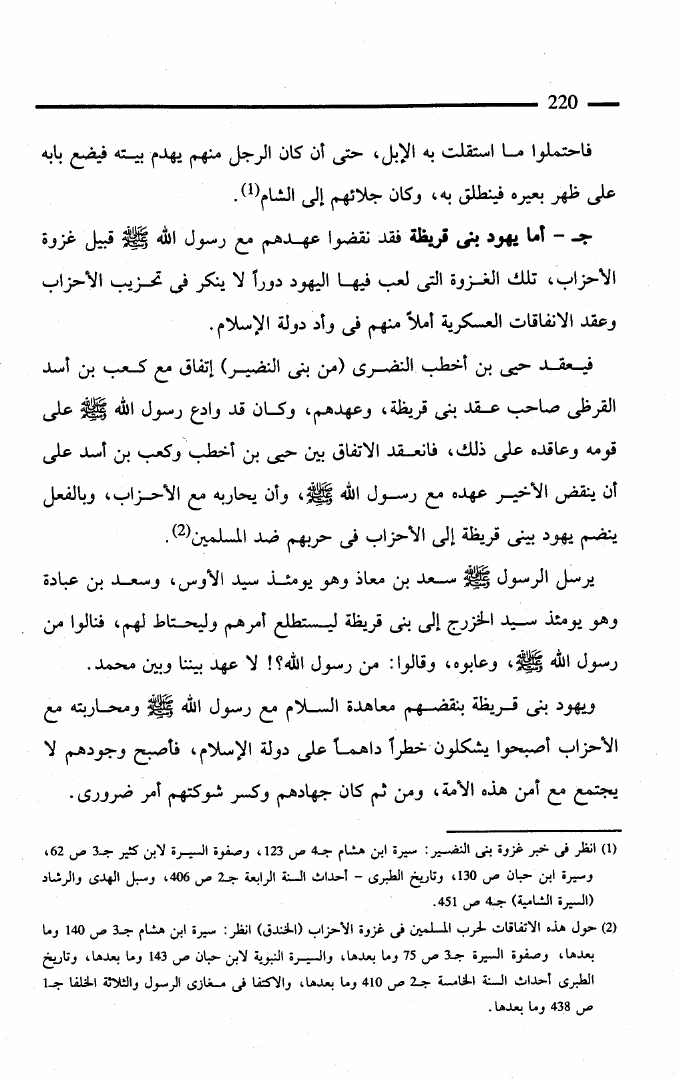 220
فاحتملوا ما استقلت به الإبل، حتى أن كان الرجل منهم يهدم بيته فيضع بابه
على ظهر بعيره فينطلق به، وكان جلائهم إلى الشام(1).
جـ - أما يهود بنى قريظة فقد نقضوا عهدهم مع رسول الله ﷺ قبيل غزوة
الأحزاب، تلك الغزوة التى لعب فيها اليهود دوراً لا ينكر فى تحزيب الأحزاب
وعقد الاتفاقات العسكرية أملاً منهم فى وأد دولة الإسلام.
فيعقد حيى بن أخطب النضرى (من بنى النضير) إتفاق مع كعب بن أسد
القرظى صاحب عقد بنى قريظة، وعهدهم، وكان قد وادع رسول الله ﷺ على
قومه وعاقده على ذلك، فانعقد الاتفاق بين حيى بن أخطب وكعب بن أسد على
أن ينقض الأخير عهده مع رسول الله ﷺ، وأن يحاربه مع الأحزاب، وبالفعل
ينضم يهود بينى قريظة إلى الأحزاب فى حربهم ضد المسلمين(2).
يرسل الرسول ﷺ سعد بن معاذ وهو يومئذ سيد الأوس، وسعد بن عبادة
وهو يومئذ سيد الخزرج إلى بنى قريظة ليستطلع أمرهم وليحتاط لهم، فنالوا من
رسول الله ﷺ، وعابوه، وقالوا: من رسول الله؟! لا عهد بيننا وبين محمد.
ويهود بنى قريظة بنقضهم معاهدة السلام مع رسول الله ﷺ ومحاربته مع
الأحزاب أصبحوا يشكلون خطراً داهماً على دولة الإسلام، فأصبح وجودهم لا
يجتمع مع أمن هذه الأمة، ومن ثم كان جهادهم وكسر شوكتهم أمر ضرورى.
(1) انظر فى خبر غزوة بنى النضير: سيرة ابن هشام جـ4 ص 123، وصفوة السيرة لابن كثير جـ3 ص 62،
وسيرة ابن حبان ص 130، وتاريخ الطبرى - أحداث السنة الرابعة جـ2 ص 406، وسبل الهدى والرشاد
(السيرة الشامية) جـ4 ص 451.
(2) حول هذه الاتفاقات لحرب المسلمين فى غزوة الأحزاب (الخندق) انظر: سيرة ابن هشام جـ3 ص 140 وما
بعدها، وصفوة السيرة جـ3 ص 75 وما بعدها، والسيرة النبوية لابن حبان ص 143 وما بعدها، وتاريخ
الطبرى أحداث السنة الخامسة جـ2 ص 410 وما بعدها، والاكتفا فى مغازى الرسول والثلاثة الخلفا جـ1
ص 438 وما بعدها.